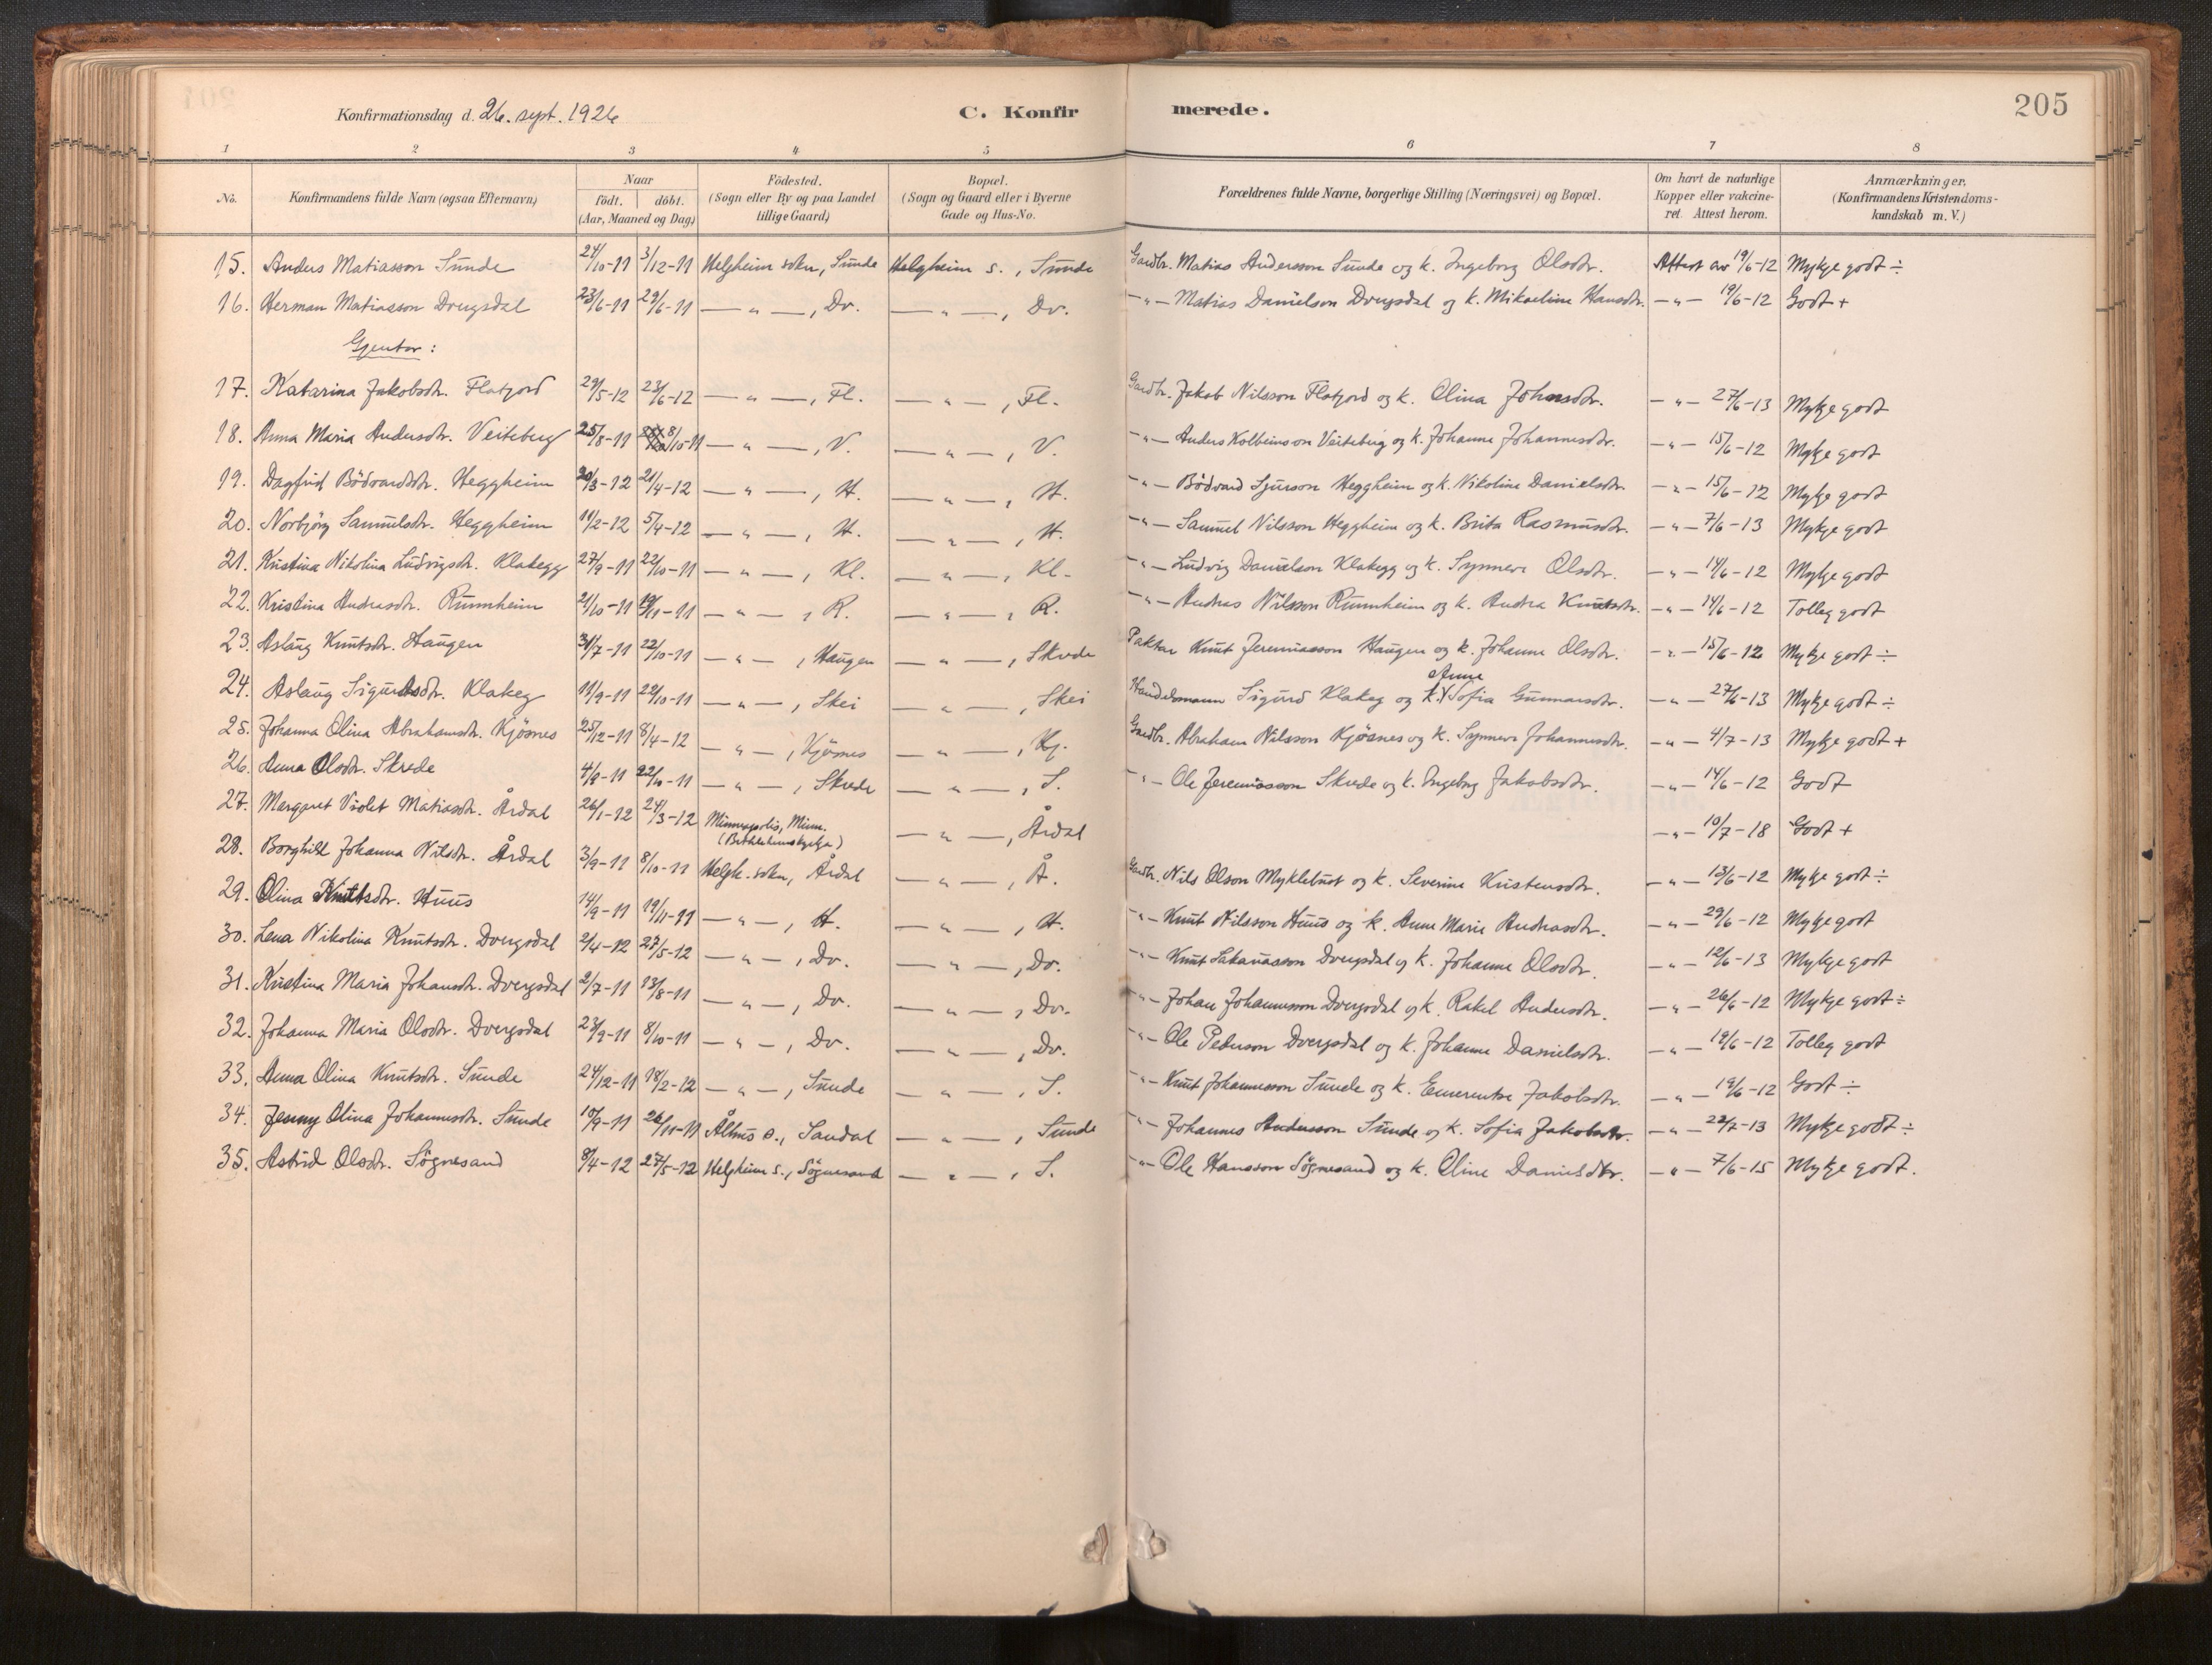 Konfirmationsdag d. 26. sept. 1926 C. Konfirmerede. 205
1 2 3 4 5 6 7 8
No. Konfirmandens fulde Navn (ogsaa Efternavn) Naar födt. döbt. (Aar, Maaned og Dag) Födested. (Sogn eller By og paa Landet tillige Gaard) Bopæl. (Sogn og Gaard eller i Byerne Gade og Hus-No. Forældrenes fulde Navne, borgerlige Stilling (Næringsvei) og Bopæl. Om havt de naturlige Kopper eller vakcineret. Attest herom. Anmærkninger. (Konfirmandens Kristendomskundskab m. V.)
15. Anders Matiasson Sunde 24/10-11 3/12-11 Helgheim sokn, Sunde Helgheim s., Sunde Gardbr. Matias Andersson Sunde og k. Ingeborg Olsdtr. Attest av 19/6-12 Mykje godt ÷
16. Herman Matiasson Dvergsdal 23/6-11 29/6-11 — " —, Dv. — " —, Dv. — " — Matias Danielson Dvergsdal og k. Mikaeline Hansdtr. — " — 19/6-12 Godt +
Gjentor:
17. Katarina Jakobsdtr. Flatjord 29/5-12 23/6-12 — " —, Fl. — " —, Fl. Gardbr. Jakob Nilsson Flatjord og k. Olina Johnsdtr. — " — 27/6-13 Mykje godt
18. Anna Maria Andersdtr. Veiteberg 25/8-11 8/10-11 — " —, V. — " —, V. — " — Anders Kolbeinson Veiteberg og k. Johanne Johannesdtr. — " — 15/6-12 Mykje godt
19. Dagfrid Bödvardsdtr. Heggheim 20/3-12 21/4-12 — " —, H. — " —, H. — " — Bödvard Sjurson Heggheim og k. Nikoline Danielsdtr. — " — 15/6-12 Mykje godt
20. Norbjörg Samuelsdtr. Heggheim 11/2-12 5/4-12 — " —, H. — " —, H. — " — Samuel Nilsson Heggheim og k. Brita Rasmusdtr. — " — 7/6-13 Mykje godt
21. Kristina Nikolina Ludvigsdtr. Klakegg 27/9-11 22/10-11 — " —, Kl. — " —, Kl. — " — Ludvig Danielson Klakegg og k. Synneve Olsdtr. — " — 14/6-12 Mykje godt
22. Kristina Andrasdtr. Rumheim 21/10-11 19/11-11 — " —, R. — " —, R. — " — Andras Nilsson Rumheim og k. Andra Knutsdtr. — " — 14/6-12 Tolleg godt
23. Aslaug Knutsdtr. Haugen 31/7-11 22/10-11 — " —, Haugen — " —, Skrede Paktar Knut Jeremiasson Haugen og k. Johanne Olsdtr. — " — 15/6-12 Mykje godt ÷
24. Aslaug Sigurdsdtr. Klakeg 11/9-11 22/10-11 — " —, Skei — " —, Skei Handelsmann Sigurd Klakeg og k. Anne Sofia Gunnarsdtr. — " — 27/6-13 Mykje godt ÷
25. Johanna Olina Abrahamsdtr. Kjösnes 25/12-11 8/4-12 — " —, Kjösnes — " —, Kj. Gardbr. Abraham Nilsson Kjösnes og k. Synneve Johannesdtr. — " — 4/7-13 Mykje godt +
26. Anna Olsdtr. Skrede 4/8-11 22/10-11 — " —, Skrede — " —, S. — " — Ole Jeremiasson Skrede og k. Ingeborg Jakobsdtr. — " — 14/6-12 Godt
27. Margaret Violet Matiasdtr. Årdal 26/1-12 24/3-12 Minneapolis, Minn. (Bethlehemskyrkja) — " —, Årdal — " — 10/7-18 Godt +
28. Borghild Johanna Nilsdtr. Årdal 3/9-11 8/10-11 Helgh. sokn, Årdal — " —, Å. Gardbr. Nils Olson Myklebust og k. Severine Kristensdtr. — " — 13/6-12 Mykje godt ÷
29. Olina Knutsdtr. Huus 14/9-11 19/11-11 — " —, H. — " —, H. — " — Knut Nilsson Huus og k. Anne Marie Andrasdtr. — " — 29/6-12 Mykje godt
30. Lena Nikolina Knutsdtr. Dvergsdal 2/4-12 27/5-12 — " —, Dv. — " —, Dv. — " — Knut Sakariasson Dvergsdal og k. Johanne Olsdtr. — " — 12/6-13 Mykje godt
31. Kristina Maria Johansdtr. Dvergsdal 2/7-11 13/8-11 — " —, Dv. — " —, Dv. — " — Johan Johannesson Dvergsdal og k. Rakel Andersdtr. — " — 26/6-12 Mykje godt ÷
32. Johanna Maria Olsdtr. Dvergsdal 23/9-11 8/10-11 — " —, Dv. — " —, Dv. — " — Ole Pederson Dvergsdal og k. Johanne Danielsdtr. — " — 19/6-12 Tolleg godt
33. Anna Olina Knutsdtr. Sunde 24/12-11 18/2-12 — " —, Sunde — " —, S. — " — Knut Johannesson Sunde og k. Emerentse Jakobsdtr. — " — 19/6-12 Godt ÷
34. Jenny Olina Johannesdtr. Sunde 10/9-11 26/11-11 Ålhus s., Sandal — " —, Sunde — " — Johannes Andersson Sunde og k. Sofia Jakobsdtr. — " — 22/7-13 Mykje godt ÷
35. Astrid Olsdtr. Sögnesand 8/4-12 27/5-12 Helgheim s., Sögnesand — " —, S. — " — Ole Hansson Sögnesand og k. Oline Danielsdtr. — " — 7/6-15 Mykje godt.